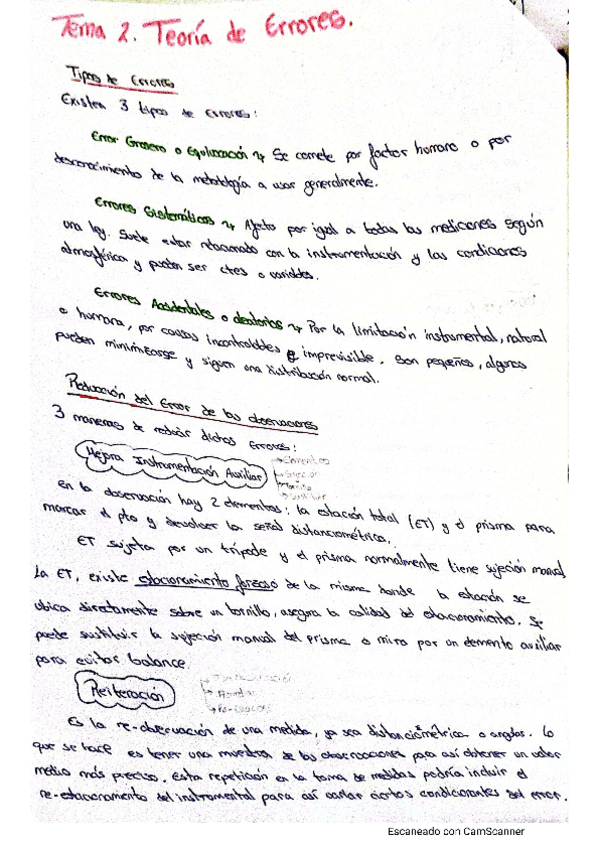 Tema 2. Teoría de Errores.
Tipos de Errores
Existen 3 tipos de errores:
Error Grosero o Equivocación ↳ Se comete por factor humano o por
desconocimiento de la metodología a usar generalmente.
Errores Sistemáticos ↳ Afecta por igual a todas las mediciones según
una ley. Suele estar relacionado con la instrumentación y las condiciones
atmosférica y pueden ser ctes o variables.
Errores Accidentales o aleatorios ↳ Por la limitación instrumental, natural
o humana, por causas incontrolables e imprevisible. Son pequeños, algunos
pueden minimizarse y siguen una distribución normal.
Reducción del Error de las observaciones
3 maneras de reducir dichos errores:
Mejora Instrumentación Auxiliar
En la observación hay 2 elementos: la estación total (ET) y el prisma para
marcar el pto y devolver la señal distanciométrica.
ET sujeta por un trípode y el prisma normalmente tiene sujeción manual
La ET, existe estacionamiento forzoso de la misma donde la estación se
ubica directamente sobre un tornillo, asegura la calidad del estacionamiento. Se
puede sustituir la sujeción manual del prisma o mira por un elemento auxiliar
para evitar balance.
Reiteración
Es la re-observación de una medida, ya sea distanciométrica o angulos. Lo
que se hace es tener una muestra de las observaciones para así obtener un valor
medio más preciso. Esta repetición en la toma de medidas podría incluir el
re-estacionamiento del instrumental para así variar ciertos condicionantes del error.
Escaneado con CamScanner